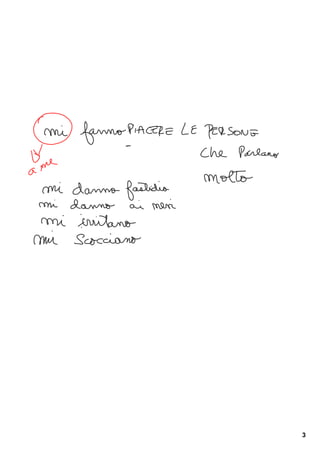 mi fanno PIACERE LE PERSONE
che Parlano
molto
a me
mi danno fastidio
mi danno ai neri
mi irritano
mi Scocciano
3